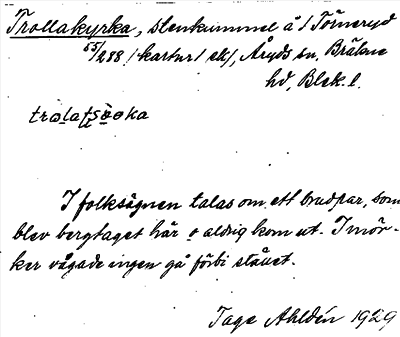 Trollakyrka, stenkummel å / Törneryd
65/288 / kartur / ek/, Åryds sn, Bräkne
hd, Blek. l.
trolatʃøoka
I folksägnen talas om ett brudpar, som
blev bergtaget här o aldrig kom ut. I mör-
ker vågade ingen gå förbi stället.
Tage Ahldén 1929